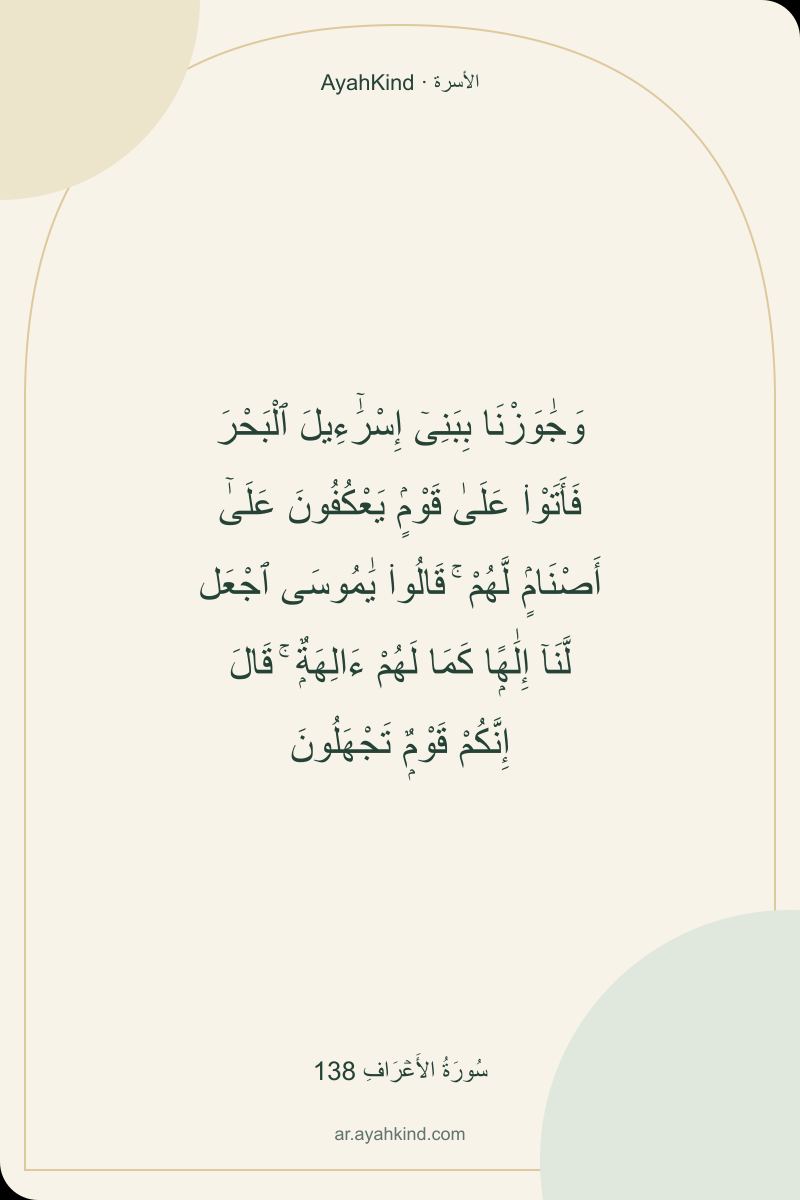 AyahKind · الأسرة
وَجَٰوَزْنَا بِبَنِىٓ إِسْرَٰٓءِيلَ ٱلْبَحْرَ
فَأَتَوْا۟ عَلَىٰ قَوْمٍۢ يَعْكُفُونَ عَلَىٰٓ
أَصْنَامٍۢ لَّهُمْ ۚ قَالُوا۟ يَٰمُوسَى ٱجْعَل
لَّنَآ إِلَٰهًۭا كَمَا لَهُمْ ءَالِهَةٌۭ ۚ قَالَ
إِنَّكُمْ قَوْمٌۭ تَجْهَلُونَ
سُورَةُ الأَعۡرَافِ 138
ar.ayahkind.com